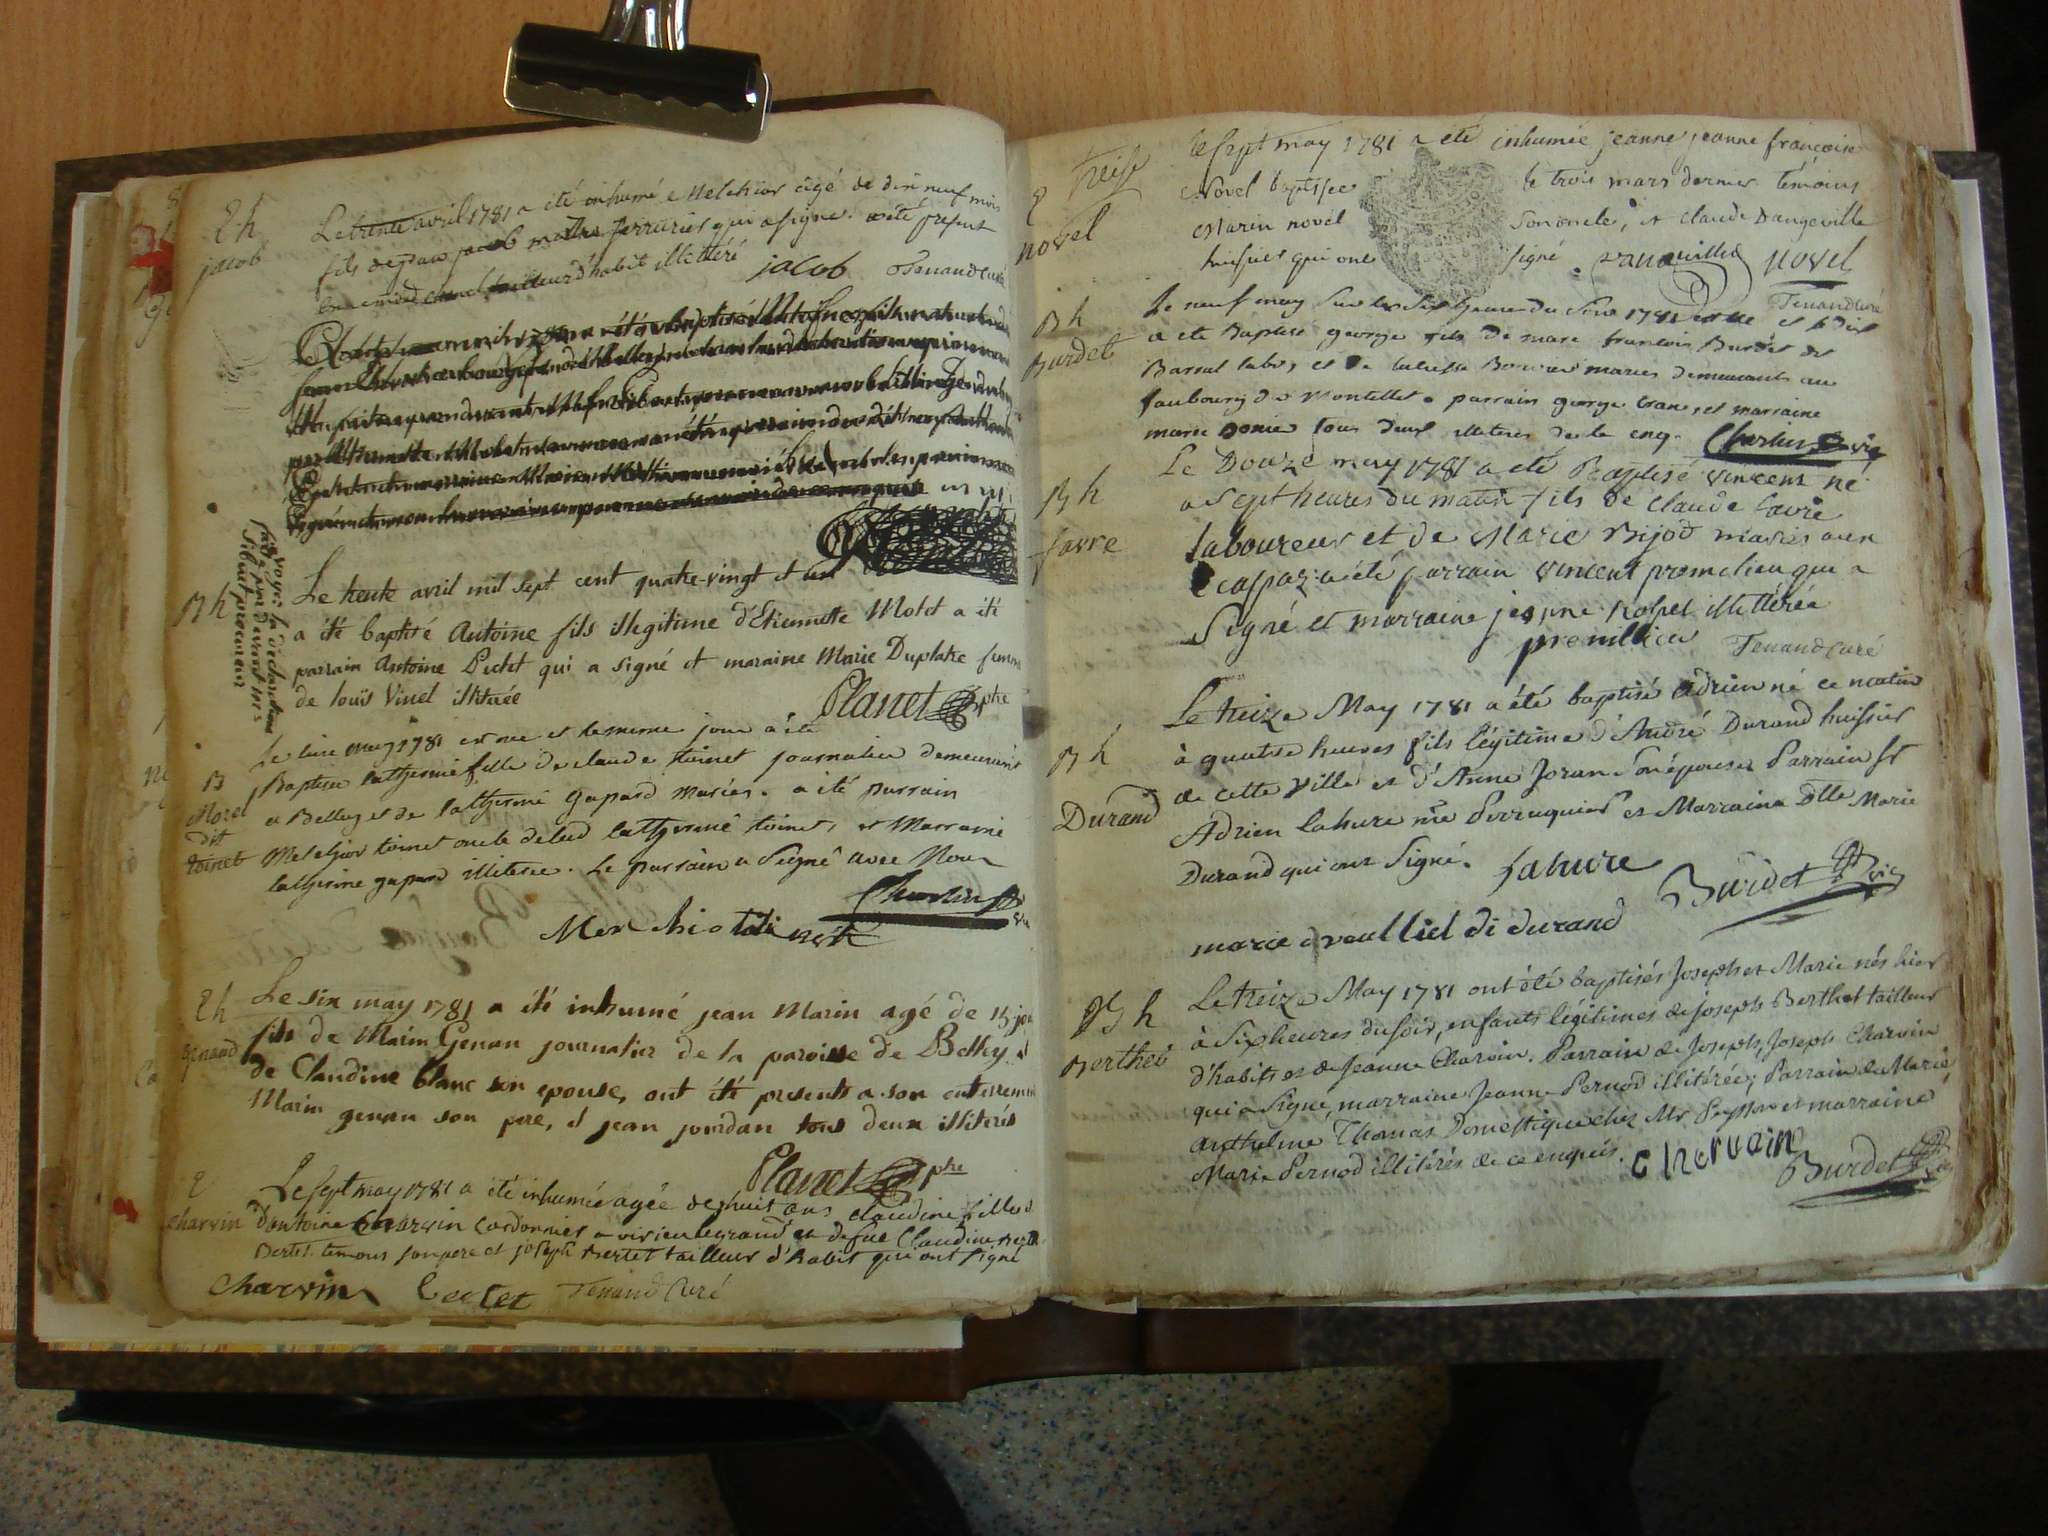 Eh
jacob
Le trente avril 1781 a été inhumé Melchior âgé de dix neuf mois
fils de jean jacob maitre serrurier qui a signé. a été présent
tailleur d'habit illettéré jacob Tenand curé
voyes la déclaration
faite par devant mrs
Sibuet procureur
Bh
Le trente avril mil sept cent quatre-vingt et un
a été baptisé Antoine fils illegitime d'Etiennette Molet a été
parrain Antoine Pichet qui a signé et maraine Marie Duplatre femme
de louïs Vinel illiterée Planet ptre
B
Morel
dit
toinet
Le may 1781 est née et le meme jour a été
Baptisée Catherine fille de claude toinet journalier demeurant
a Belley et de Catherine Gapard mariés. a été parrain
Melchior toinet oncle de lad Catherine toinet, et Marraine
Catherine gapard illiterée. Le parrain a Signé avec Nous
Charlin vic
Merchio toinet
Eh
Genand
Le six may 1781 a été inhumé jean Marin agé de 15 jou
fils de Marin Genan journalier de la paroisse de Belley et
de Claudine blanc son epouse, ont été presents a son enterrem
Marin genan son pere, et jean jourdan tous deux illiterés
Planet ptre
E
charvin
Le sept may 1781 a été inhumée agée de huit ans claudine fille d
d'antoine Charvin Cordonnier a virieu legrand et de fue Claudine
Bertet temoins son pere et joseph Bertet tailleur d'habit qui ont signé
Charvin Bertet Tenand Curé
Treise
E
novel
le sept may 1781 a été inhumée jeanne jeanne françoise
Novel baptisée le trois mars dernier témoins
Marin novel son oncle, et claude Dangeville
huissier qui ont signé. Dangeville novel
Tenand curé
Bh
Burdet
Le neuf may Sur les Six heures du Soir 1781 est né et le dix
a été Baptisé george fils De marc francois Burdet de
Barral labr, et De Bouvier mariés demeurants au
faubourg de Montillet. parrain george et marraine
marie tous deux illiteres de ce enq. Charlin vic
Bh
favre
Le Douze may 1781 a été Baptisé vincent né
a sept heures du matin fils de Claude favre
laboureur et de Marie Bijod mariés aux
ecassaz. a été parrain vincent promelieu qui a
Signé et marraine jeanne illettérée
premillieu Tenand Curé
Bh
Durand
Le treize May 1781 a été baptisé Adrien né ce matin
à quatre heures fils légitime d'André Durand huissier
de cette Ville et d'Anne Joran Son épouse. Parrain Sr
Adrien Lahure me Perruquier et Marraine Dlle Marie
Durand qui ont Signé. Lahure Burdet vic
marie di durand
Bh
Berthet
Le treize May 1781 ont été baptisés Joseph et Marie nés hier
à Six heures du Soir, enfants légitimes de Joseph Berthet tailleur
d'habits et de Jeanne Charvin. Parrain de Joseph, Joseph Charvin
qui a Signé, marraine Jeanne Pernod illitérée; Parrain de Marie
Anthelme Thomas Domestique chez Mr et marraine
Marie Pernod illitérés de ce enquis. Chervain
Burdet vic